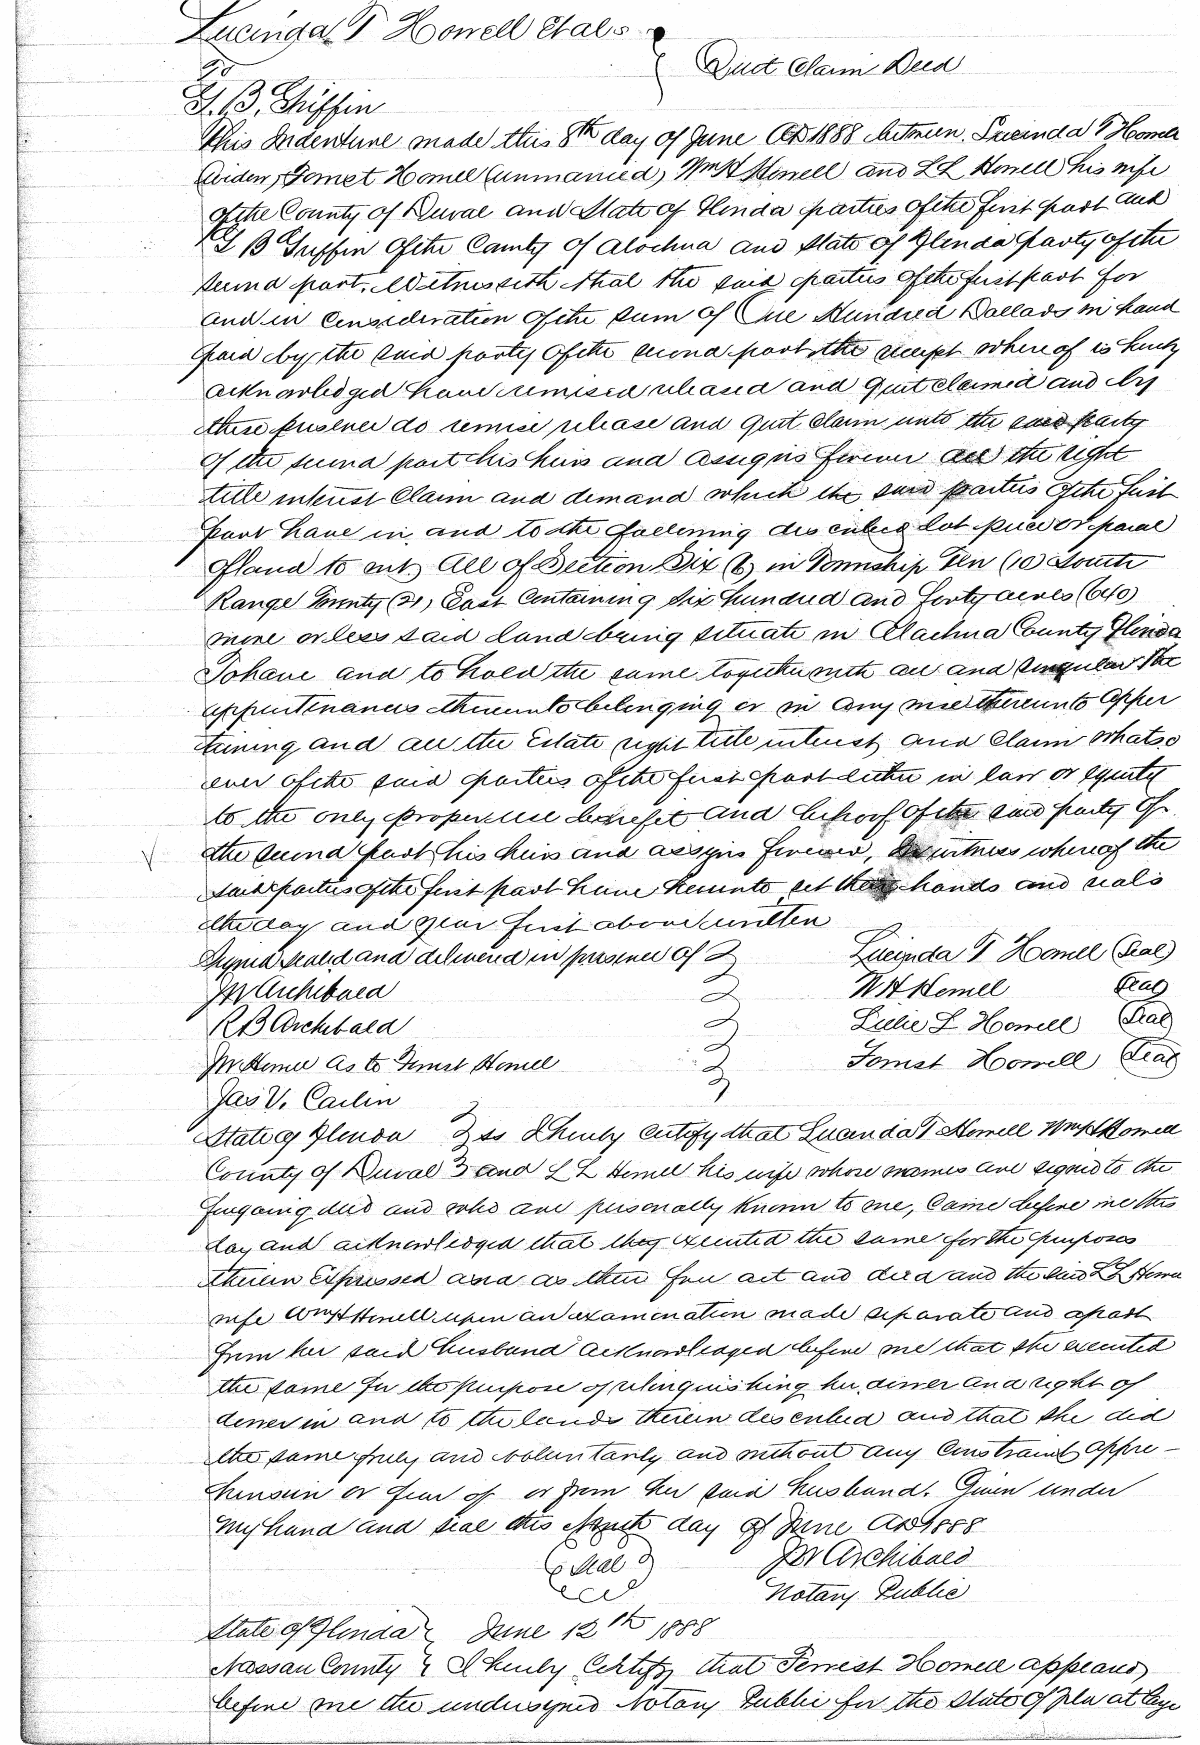 Lucinda T Howell et als
To
Quit Claim Deed
T. B. Griffin
This Indenture made this 8th day of June AD 1888 between Lucinda T Howell
Widow, Forrest Howell (unmarried) Wm H Howell and L L Howell his wife
of the County of Duval and State of Florida parties of the first part and
T B Griffin of the County of Alachua and State of Florida party of the
second part. Witnesseth that the said parties of the first part for
and in Consideration of the sum of One Hundred Dollars in hand
paid by the said party of the second part the receipt where of is hereby
acknowledged have remised released and quit claimed and by
these presence do remise release and quit claim unto the said party
of the second part his heirs and assigns forever all the right
title interest Claim and demand which the said parties of the first
part have in and to the following described lot piece or parcel
of land to wit, All of Section Six (6) in Township Ten (10) South
Range Twenty (21) East Containing Six hundred and forty acres (640)
more or less said land being situate in Alachua County Florida
To have and to hold the same together with all and singular the
appurtenances thereunto belonging or in any wise thereunto apper
taining and all the Estate right title interest and Claim whatso
ever of the said parties of the first part either in law or equity
to the only proper use benefit and behoof of the said party of
the second part his heirs and assigns forever, In witness whereof the
said parties of the first part have hereunto set their hands and seals
the day and year first above written
Signed sealed and delivered in presence of Lucinda T Howell (Seal)
J M Archibald W H Howell (Seal)
R B Archibald Lulie L Howell (Seal)
J M Howell as to Forrest Howell Forrest Howell (Seal)
Jas V. Carlin
State of Florida ss I hereby certify that Lucinda T Howell Wm H Howell
County of Duval and L L Howell his wife whose names are signed to the
foregoing deed and who are personally known to me, Came before me this
day and acknowledged that they executed the same for the purposes
therein Expressed and as their free act and deed and the said L L Howell
wife Wm H Howell upon an examination made separate and apart
from her said husband acknowledged before me that she executed
the same for the purpose of relinquishing her dower and right of
dower in and to the lands therein described and that she did
the same freely and voluntarily and without any Constraint appre-
hension or fear of or from her said husband. Given under
my hand and seal this Ninth day of June AD 1888
(Seal) J M Archibald
Notary Public
State of Florida June 12th 1888
Nassau County I hereby Certify that Forrest Howell appeared
before me the undersigned Notary Public for the State of Fla at large